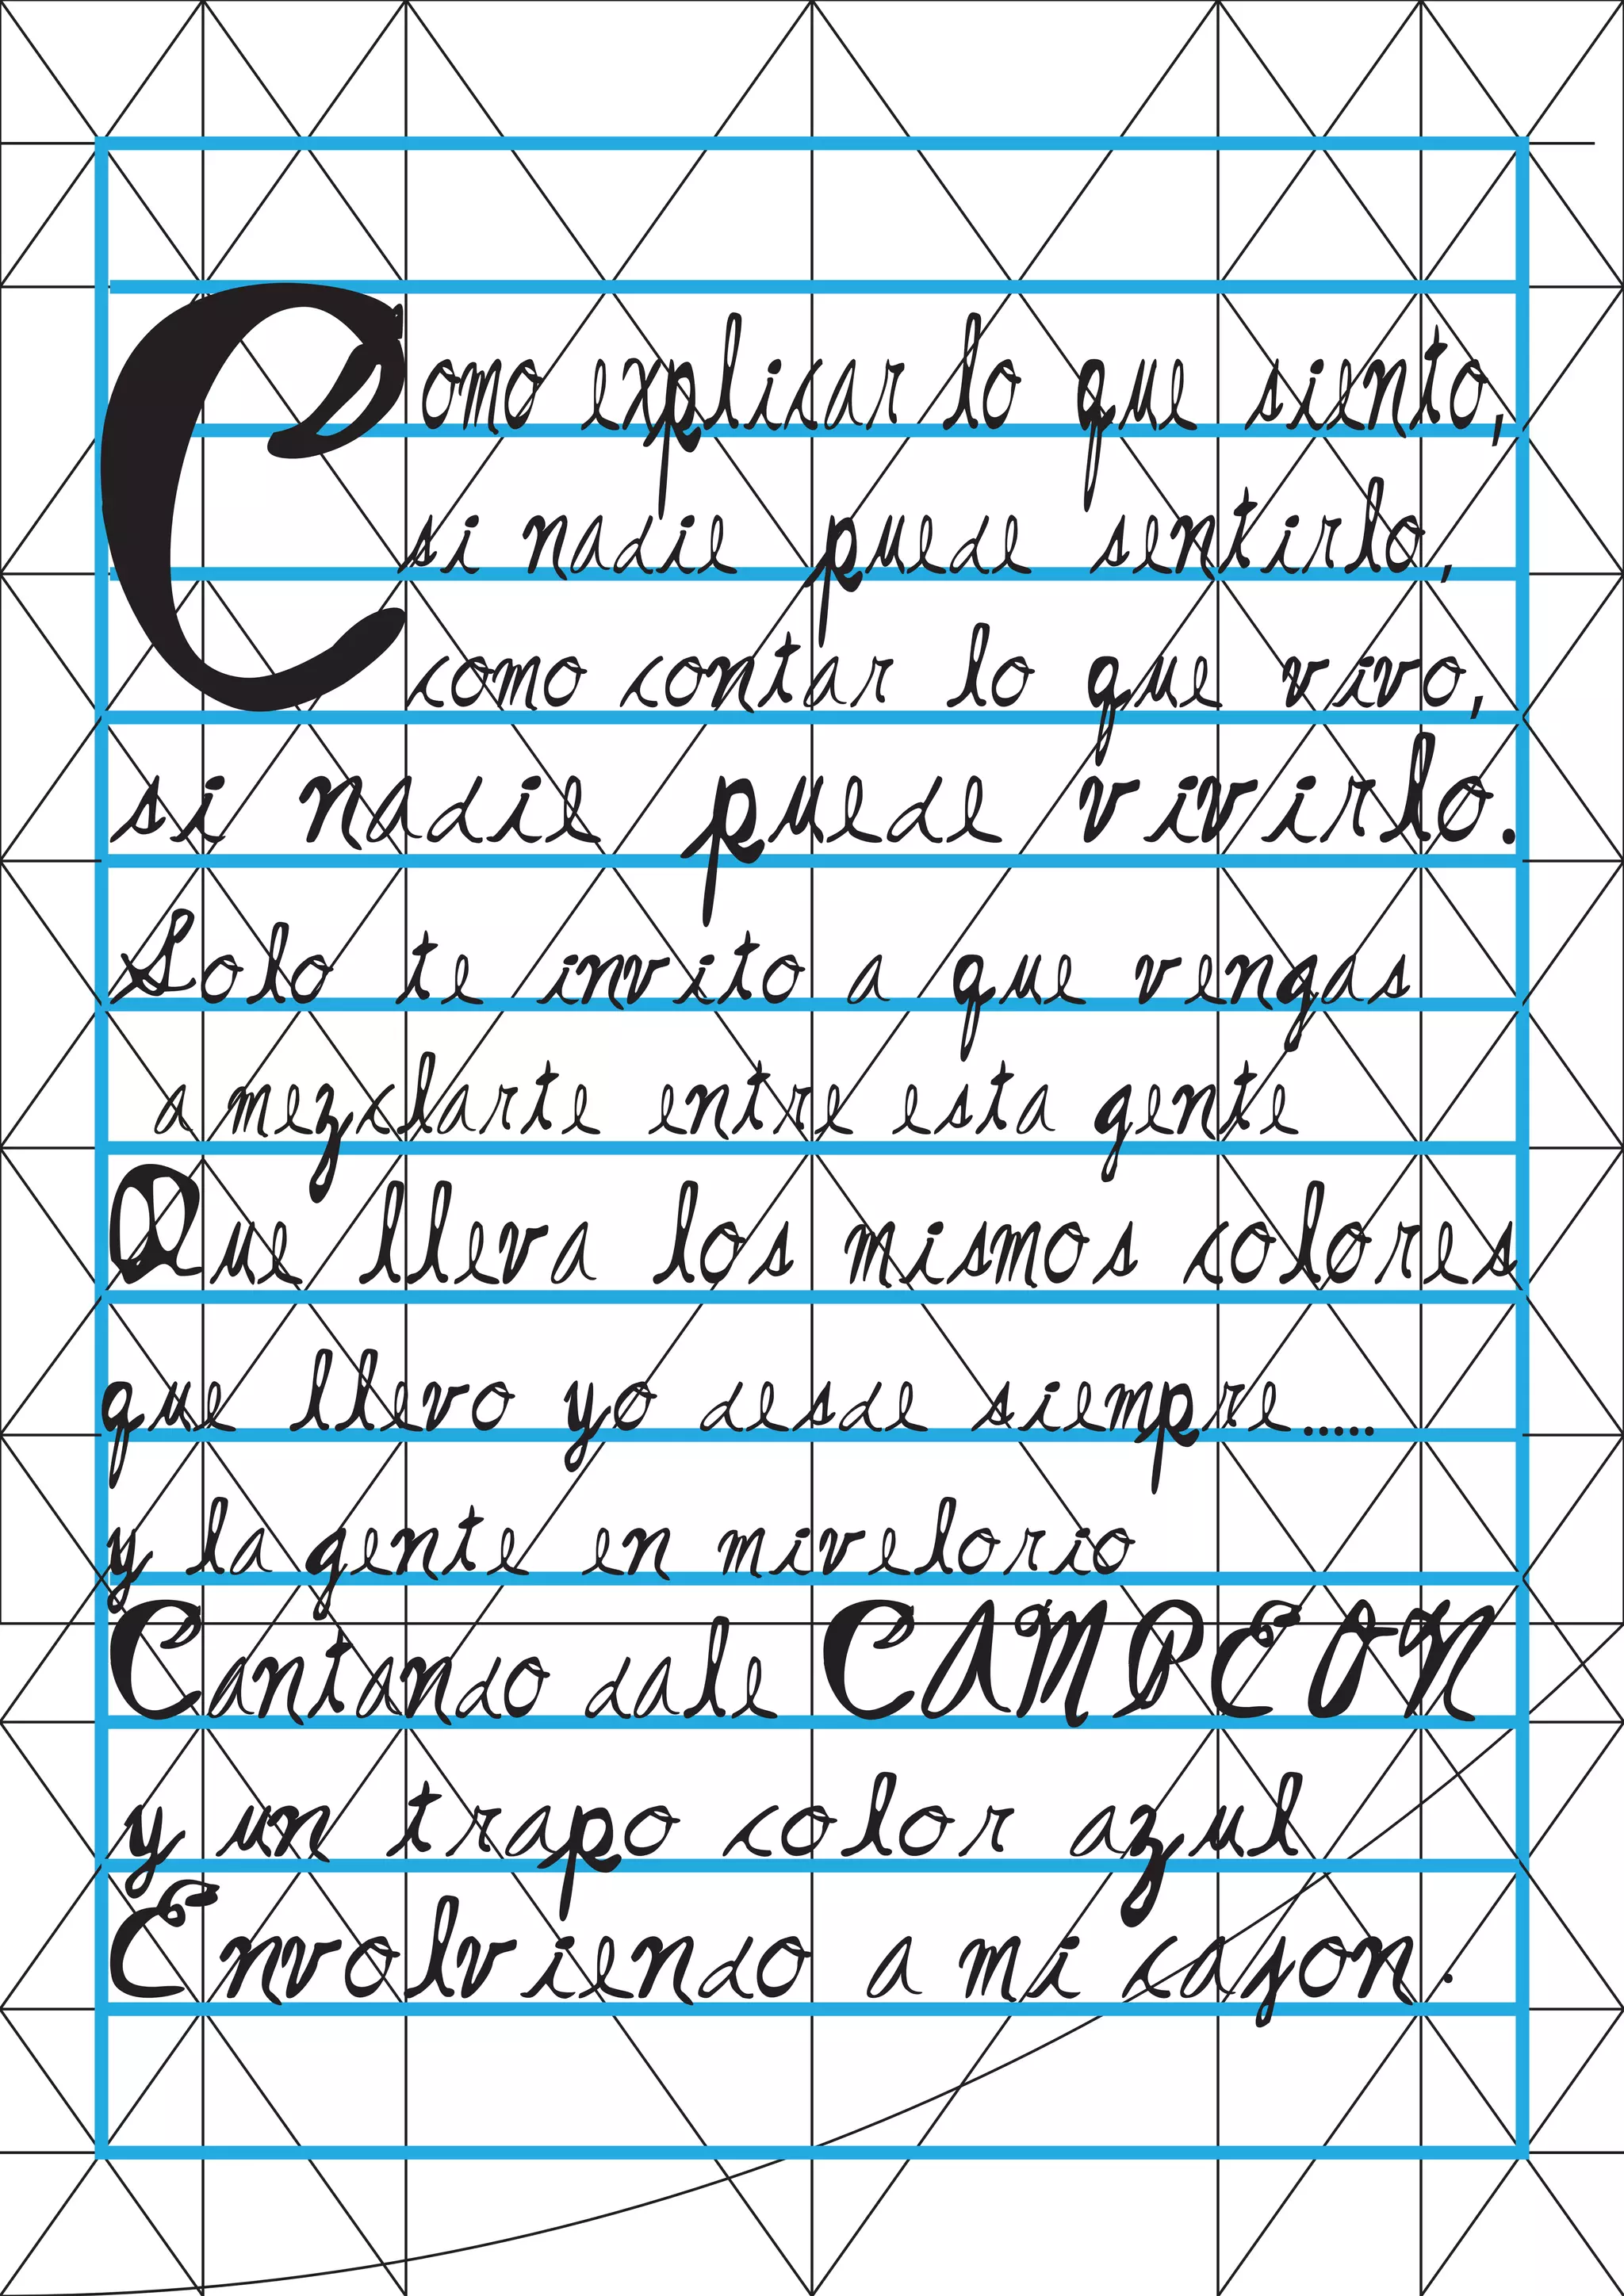 Como explicar lo que siento,
si nadie puede sentirlo,
como contar lo que vivo,
si nadie puede vivirlo.
Solo te invito a que vengas
a mezclarte entre esta gente
Que lleva los mismos colores
que llevo yo desde siempre.....
y la gente en mivelorio
Cantando dale CAMPEON
y un trapo color azul
Envolviendo a mi cajon.